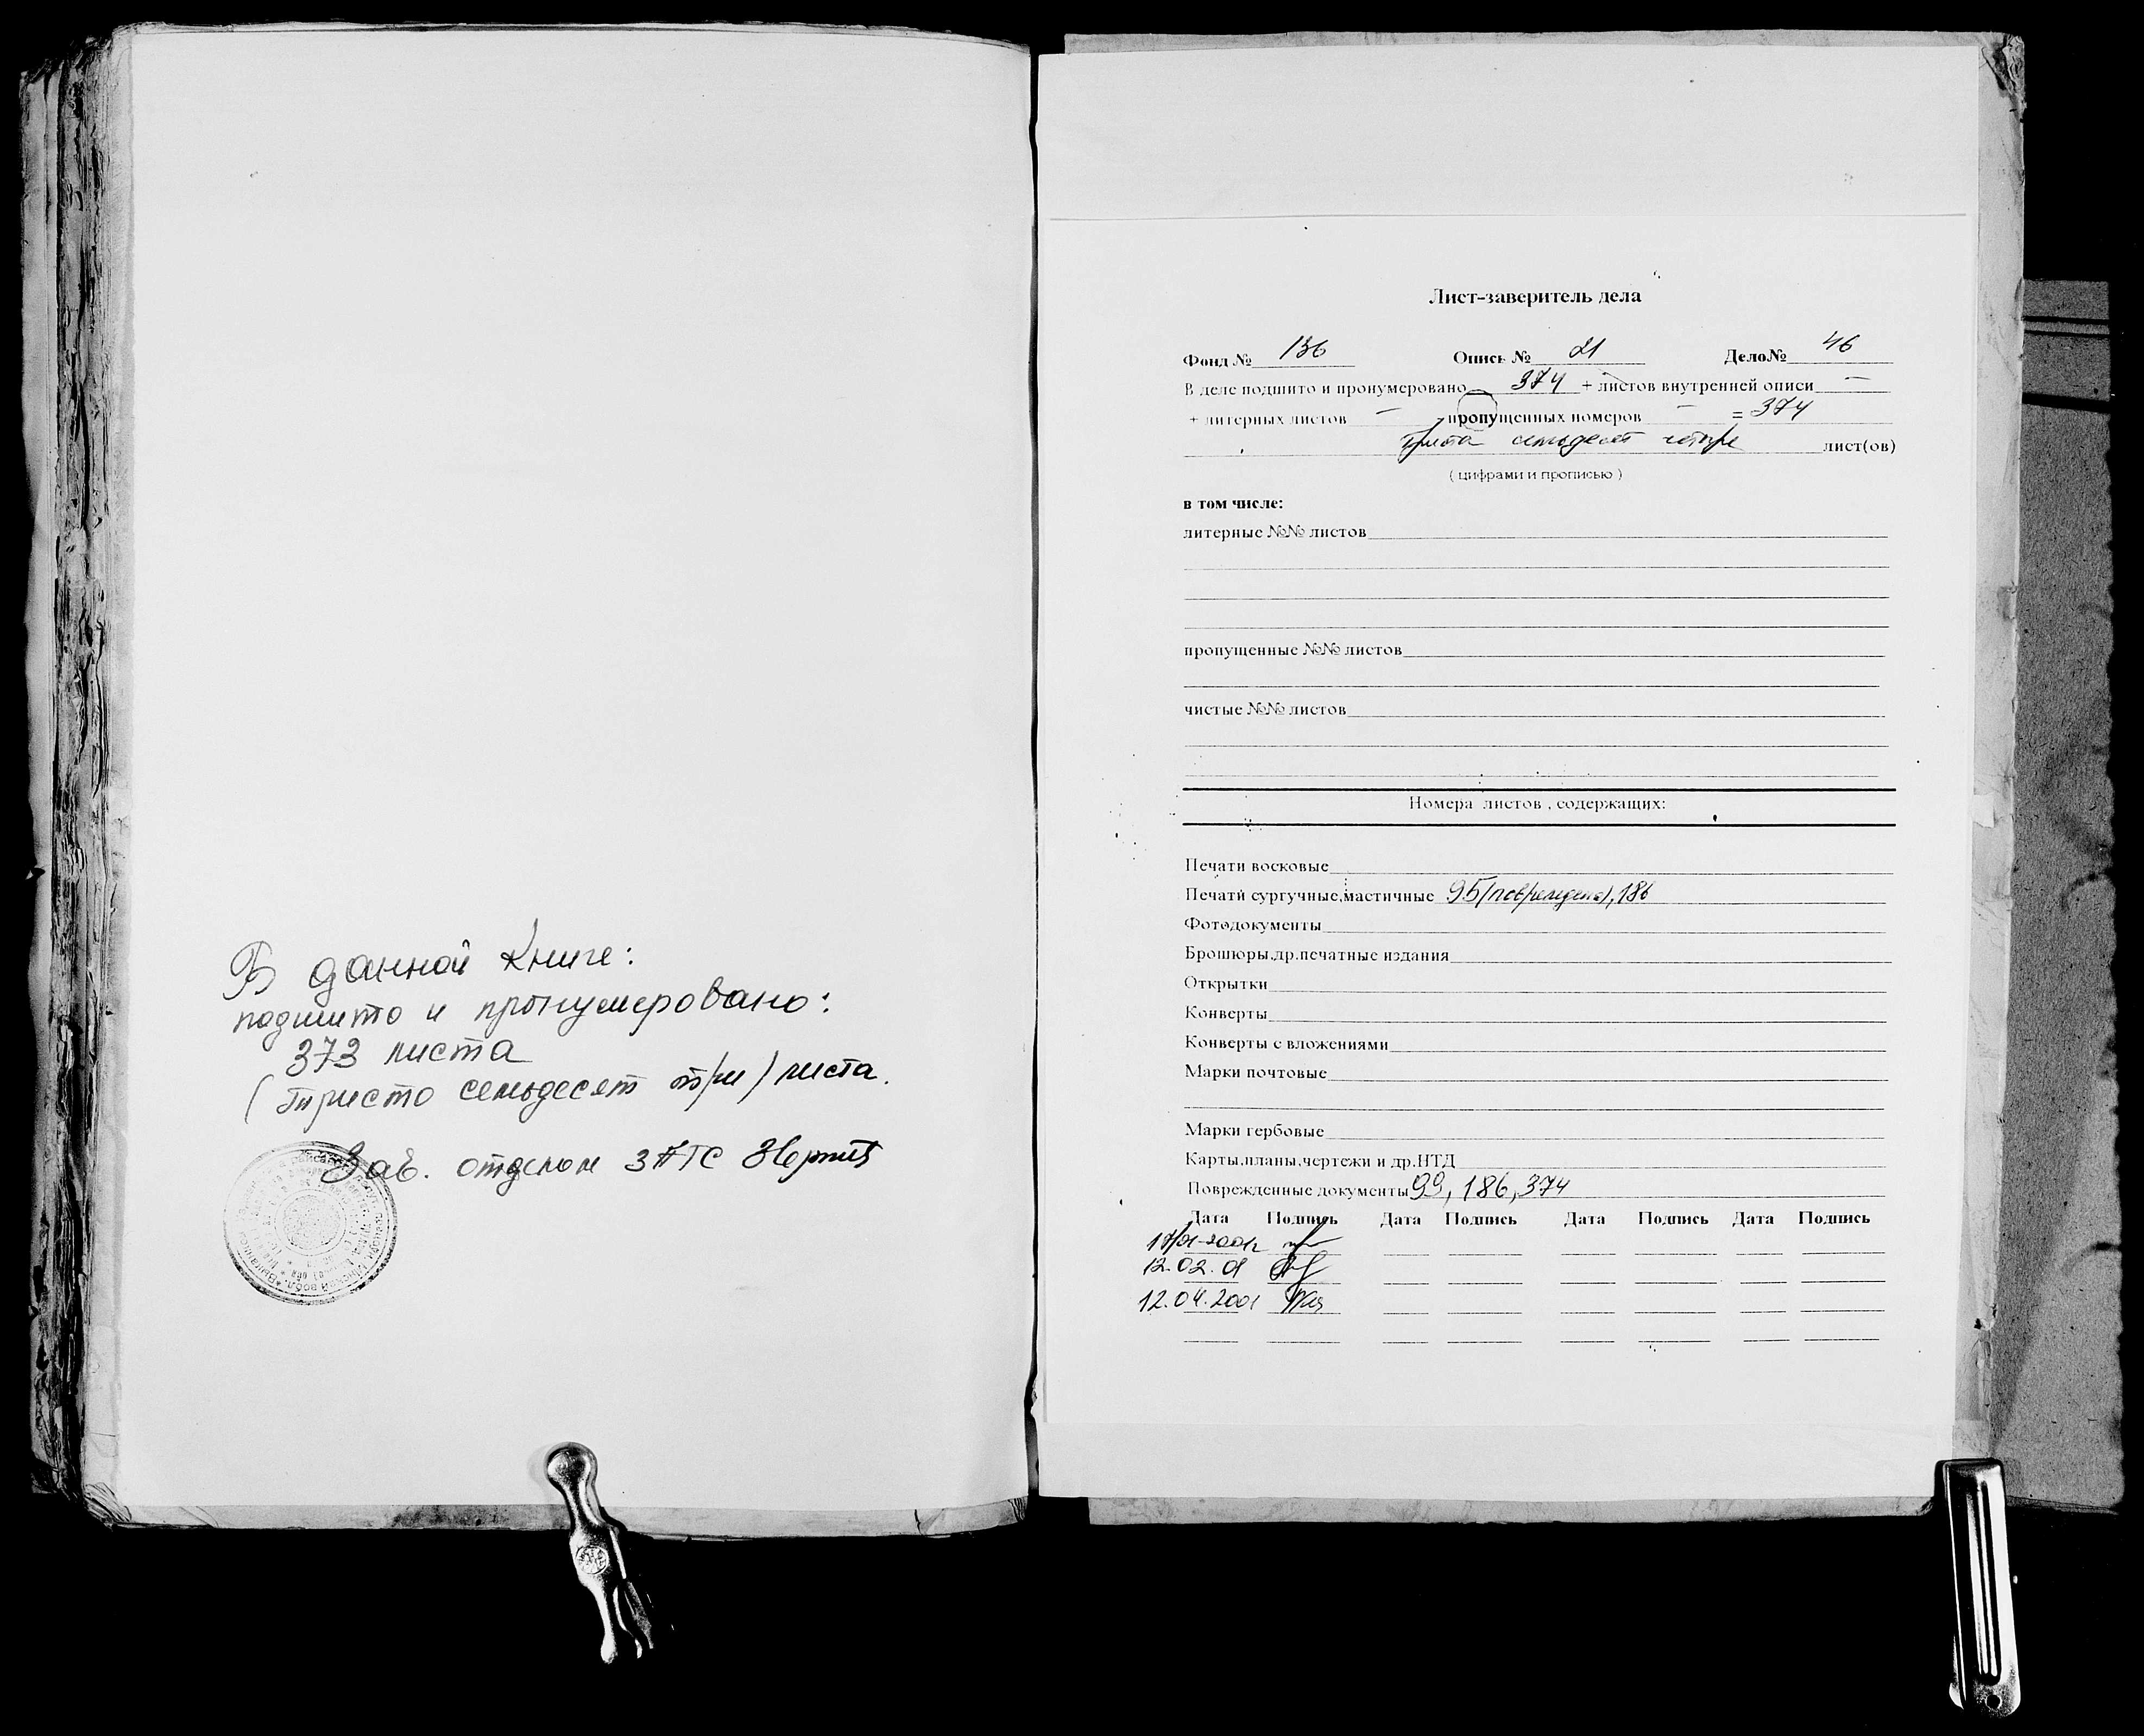 В данной книге:
подшито и пронумеровано:
373 листа
(Тристо семьдесят три) листа.
Зав. отделом ЗАГС
Лист-заверитель дела
Фонд № 136 Опись № 21 Дело№ 46
В деле подшито и пронумеровано 374 + листов внутренней описи —
+ литерных листов — , пропущенных номеров — = 374
триста семьдесят четыре лист(ов)
( цифрами и прописью )
в том числе:
литерные №№ листов
пропущенные №№ листов
чистые №№ листов
Номера листов , содержащих:
Печати восковые
Печати сургучные,мастичные 95(повреждена), 186
Фотодокументы
Брошюры,др.печатные издания
Открытки
Конверты
Конверты с вложениями
Марки почтовые
Марки гербовые
Карты,планы,чертежи и др.НТД
Поврежденные документы 99, 186, 374
Дата Подпись Дата Подпись Дата Подпись Дата Подпись
12.02.01
12.04.2001